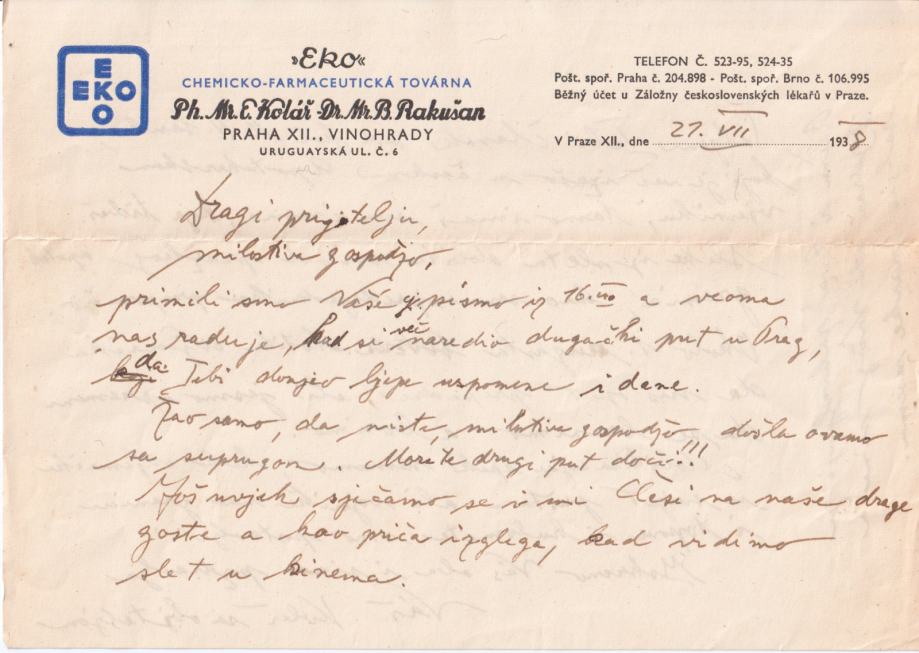 EKO
EKO
»Eko«
CHEMICKO-FARMACEUTICKÁ TOVÁRNA
Ph. Mr. E. Kolář - Dr. Mr. B. Rakušan
PRAHA XII., VINOHRADY
URUGUAYSKÁ UL. Č. 6
TELEFON Č. 523-95, 524-35
Pošt. spoř. Praha č. 204.898 - Pošt. spoř. Brno č. 106.995
Běžný účet u Záložny československých lékařů v Praze.
V Praze XII., dne 27. VII 1938
Dragi prijatelju,
milostiva gospodjo,
primili smo Vaše pismo iz 16. a veoma
nas raduje, kad si već naredio dugački put u Prag,
da Tebi donjeo ljepe uspomene i dane.
Žao samo, da niste, milostiva gospodjo, došla ovamo
sa suprugom. Morate drugi put doći!!!
Još uvjek sjećamo se i mi Česi na naše drage
goste a kao priča izgleda, kad vidimo
slet u kinema.